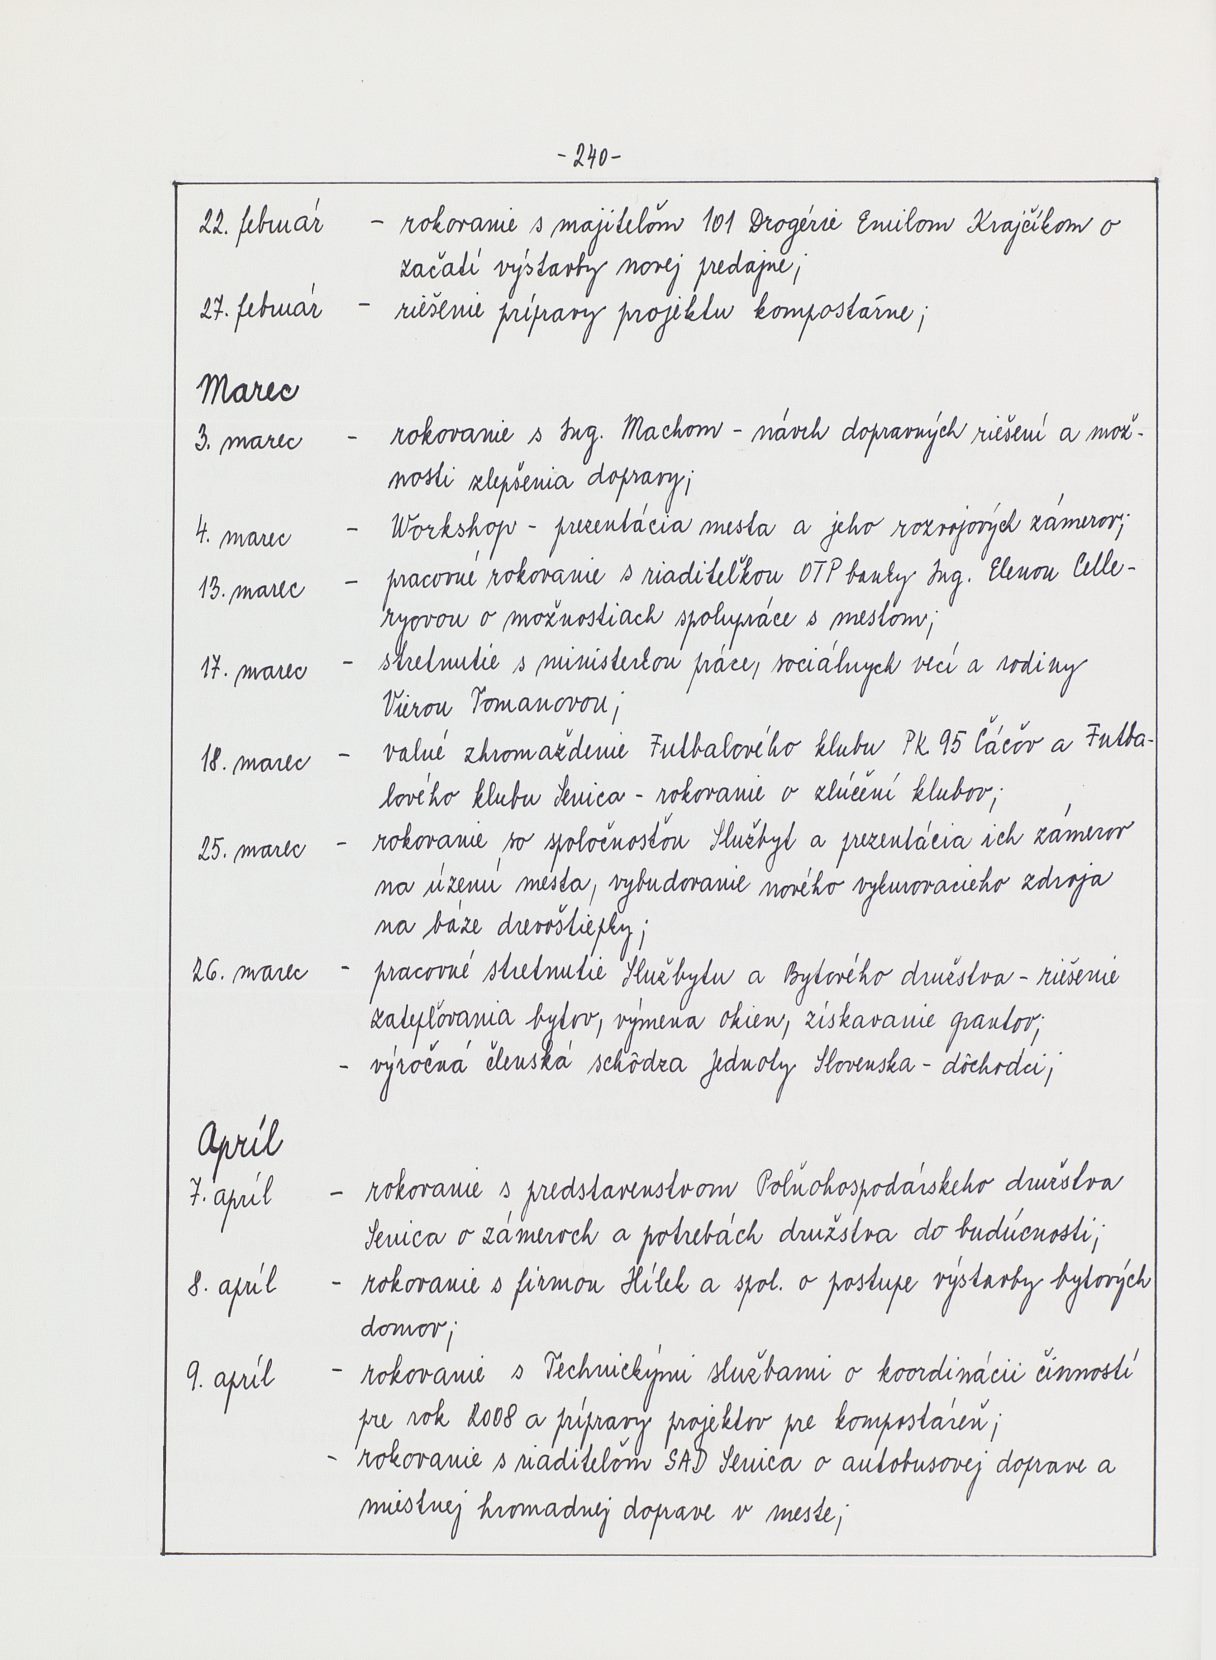 - 240 -
22. február - rokovanie s majiteľom 101 Drogérie Emilom Krajčíkom o
začatí výstavby novej predajne;
27. február - riešenie prípravy projektu kompostárne;
Marec
3. marec - rokovanie s Ing. Machom - návrh dopravných riešení a mož-
nosti zlepšenia dopravy;
4. marec - Workshop - prezentácia mesta a jeho rozvojových zámerov;
13. marec - pracovné rokovanie s riaditeľkou OTP banky Ing. Elenou Celle-
ryovou o možnostiach spolupráce s mestom;
17. marec - stretnutie s ministerkou práce, sociálnych vecí a rodiny
Vierou Tomanovou;
18. marec - valné zhromaždenie Futbalového klubu PK 95 Čáčov a Futba-
lového klubu Senica - rokovanie o zlúčení klubov;
25. marec - rokovanie so spoločnosťou Službyt a prezentácia ich zámerov
na území mesta, vybudovanie nového vykurovacieho zdroja
na báze drevoštiepky;
26. marec - pracovné stretnutie Službytu a Bytového družstva - riešenie
zatepľovania bytov, výmena okien, získavanie grantov;
- výročná členská schôdza Jednoty Slovenska - dôchodci;
Apríl
7. apríl - rokovanie s predstavenstvom Poľnohospodárskeho družstva
Senica o zámeroch a potrebách družstva do budúcnosti;
8. apríl - rokovanie s firmou Hílek a spol. o postupe výstavby bytových
domov;
9. apríl - rokovanie s Technickými službami o koordinácii činností
pre rok 2008 a prípravy projektov pre kompostáreň;
- rokovanie s riaditeľom SAD Senica o autobusovej doprave a
miestnej hromadnej doprave v meste;